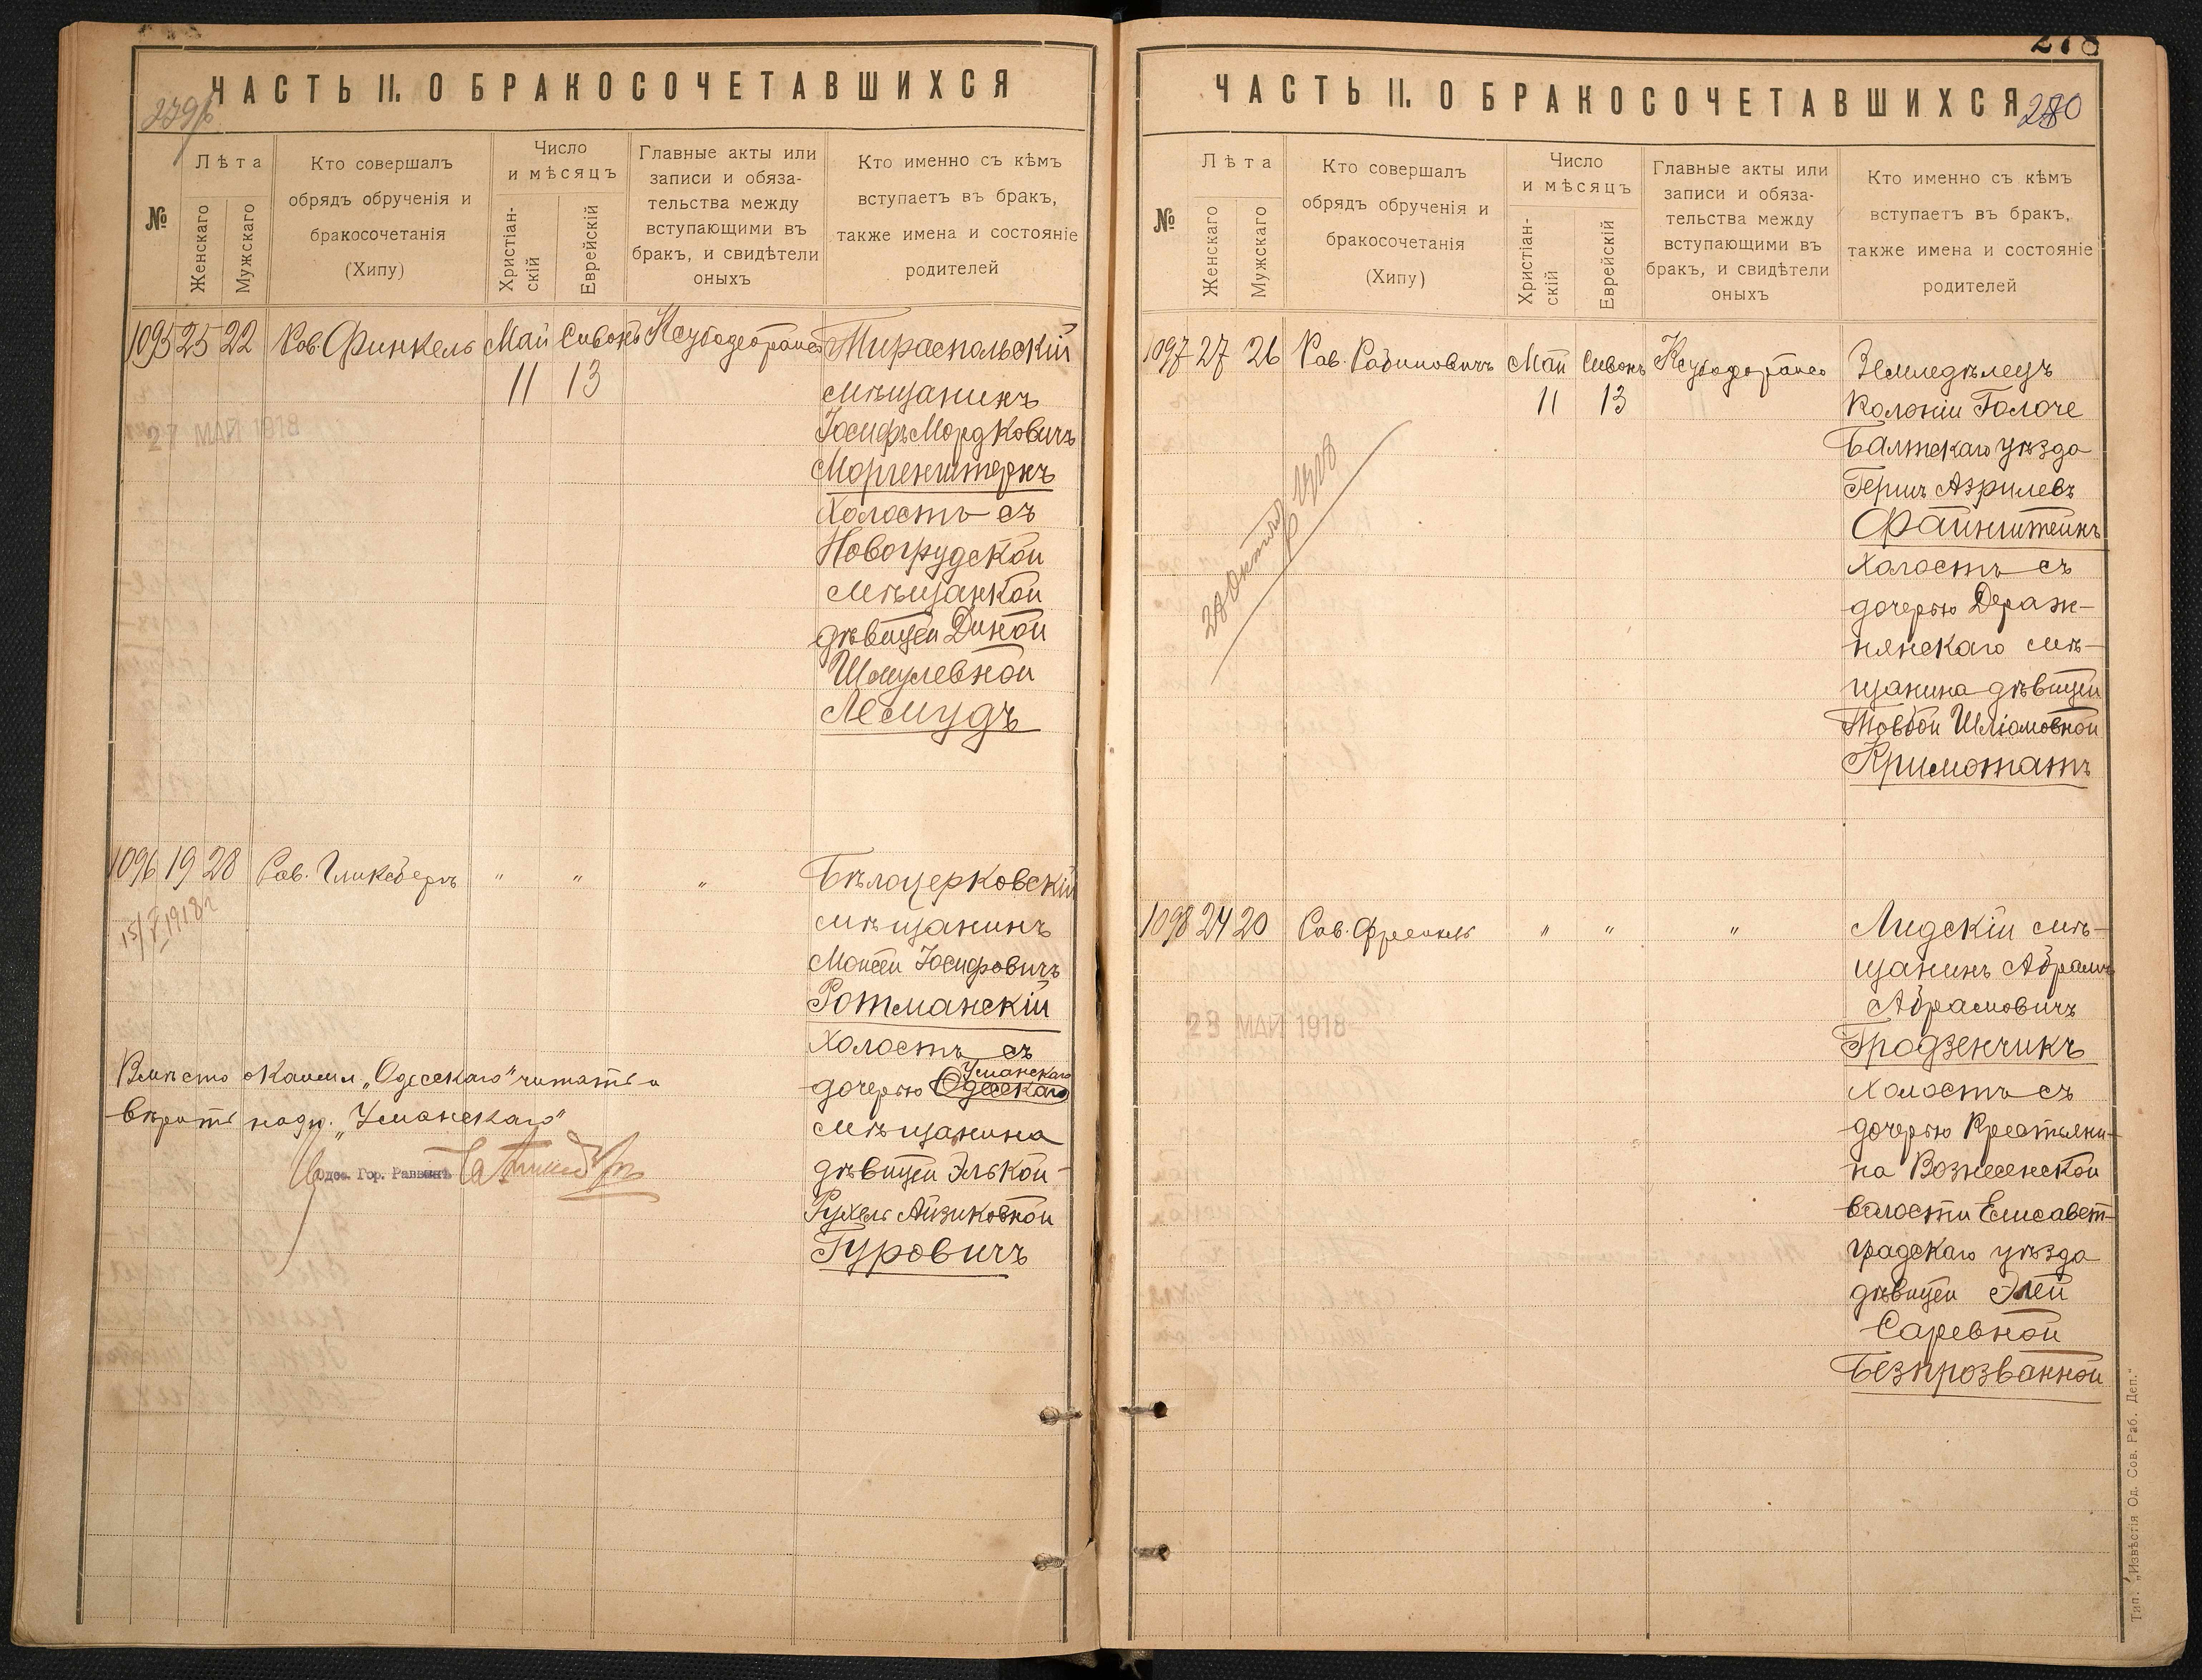 ЧАСТЬ II. О БРАКОСОЧЕТАВШИХСЯ
№
Лѣта
Женскаго
Мужскаго
Кто совершалъ
обрядъ обрученія и
бракосочетанія
(Хипу)
Число
и мѣсяцъ
Христіан-
скій
Еврейскій
Главные акты или
записи и обяза-
тельства между
вступающими въ
бракъ, и свидѣтели
оныхъ
Кто именно съ кѣмъ
вступаетъ въ бракъ,
также имена и состояніе
родителей
1095 25 22 Рав. Финкель Май Сивонъ Тираспольскій
11 13 мѣщанинъ
27 МАЙ 1918
Іосифъ Мордковичъ
Моргенштернъ
Холостъ съ
Новогрудской
мѣщанкой
дѣвицей Диной
Шмулевной
Лемудъ
1096 19 28 Рав. Гликсбергъ " " " Бѣлоцерковскій
15/V 1918 г
мѣщанинъ
Моисей Іосифовичъ
Ротманскій
Холостъ съ
Уманскаго
дочерью Одесскаго
мѣщанина
дѣвицей Элькой-
Рухель Айзиковной
Гуровичъ
Вмѣсто „Одесскаго" читать и
вѣрить надп. „Уманскаго"
Одес. Гор. Раввинъ
278
ЧАСТЬ II. О БРАКОСОЧЕТАВШИХСЯ
280
№
Лѣта
Женскаго
Мужскаго
Кто совершалъ
обрядъ обрученія и
бракосочетанія
(Хипу)
Число
и мѣсяцъ
Христіан-
скій
Еврейскій
Главные акты или
записи и обяза-
тельства между
вступающими въ
бракъ, и свидѣтели
оныхъ
Кто именно съ кѣмъ
вступаетъ въ бракъ,
также имена и состояніе
родителей
1097 27 26 Рав. Рабиновичъ Май Сивонъ Земледѣлецъ
11 13 Колоніи Голоче
Балтскаго уѣзда
Гершъ Азрилевъ
Файнштейнъ
Холостъ съ
дочерью Дераж-
нянскаго мѣ-
щанина дѣвицей
Товбой Шліомовной
Кримотатъ
1098 24 20 Рав. Френкель " " " Лидскій мѣ-
щанинъ Абрамъ
Абрамовичъ
23 МАЙ 1918
Гродзенчикъ
Холостъ съ
дочерью Крестьяни-
на Вознесенской
волости Елисавет-
градскаго уѣзда
дѣвицей Элей
Саревной
Безпрозванной
Тип. „Извѣстія Од. Сов. Раб. Деп."